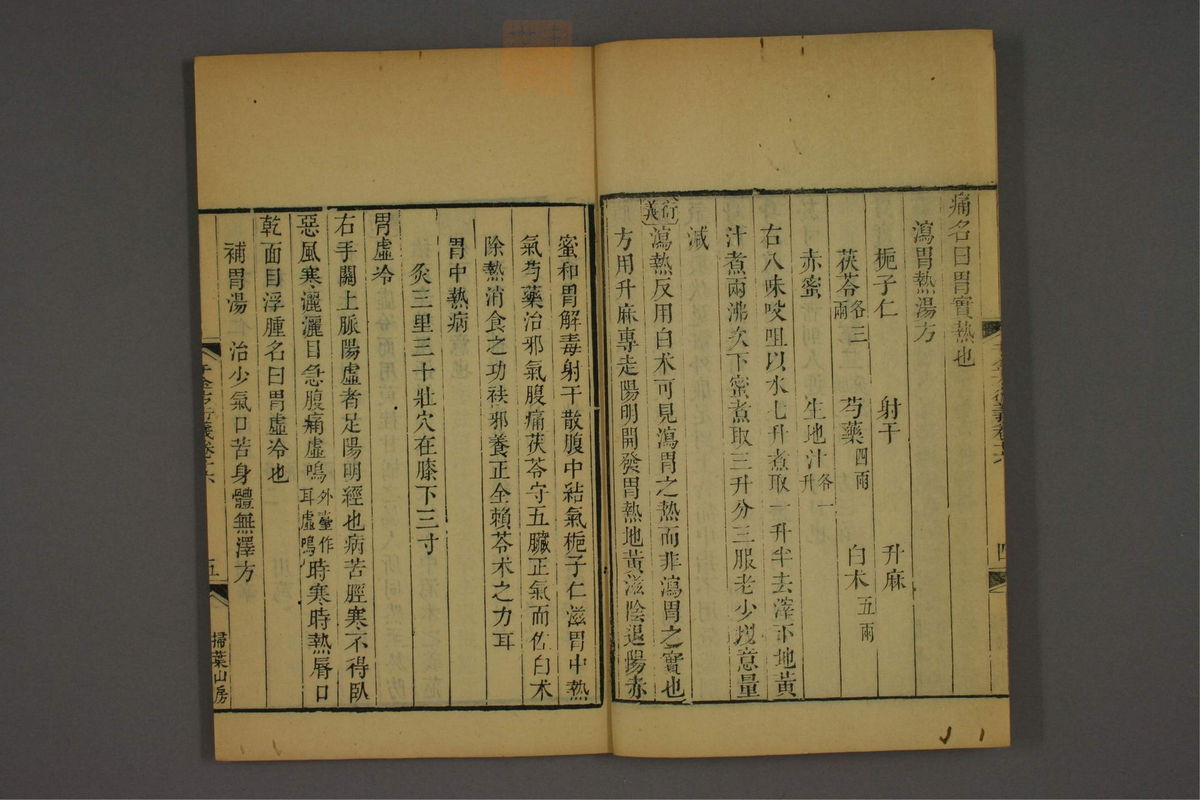 痛名曰胃實熱也
瀉胃熱湯方
梔子仁 射干 升麻
茯苓各三兩 芍藥四兩 白术五兩
赤蜜 生地汁各一升
右八味㕮咀以水七升煮取一升半去滓下地黃
汁煮兩沸次下蜜煮取三升分三服老少以意量
減
衍義瀉熱反用白术可見瀉胃之熱而非瀉胃之實也
方用升麻專走陽明開發胃熱地黃滋陰退陽赤
蜜和胃解毒射干散腹中結氣梔子仁滋胃中熱
氣芍藥治邪氣腹痛茯苓守五臟正氣而佐白术
除熱消食之功袪邪養正全賴苓术之力耳
胃中熱病
灸三里三十壯穴在膝下三寸
胃虛冷
右手關上脈陽虛者足陽明經也病苦脛寒不得臥
惡風寒灑灑目急腹痛虛鳴外臺作耳虛鳴時寒時熱脣口
乾面目浮腫名曰胃虛冷也
補胃湯 治少氣口苦身體無澤方
五
掃葉山房